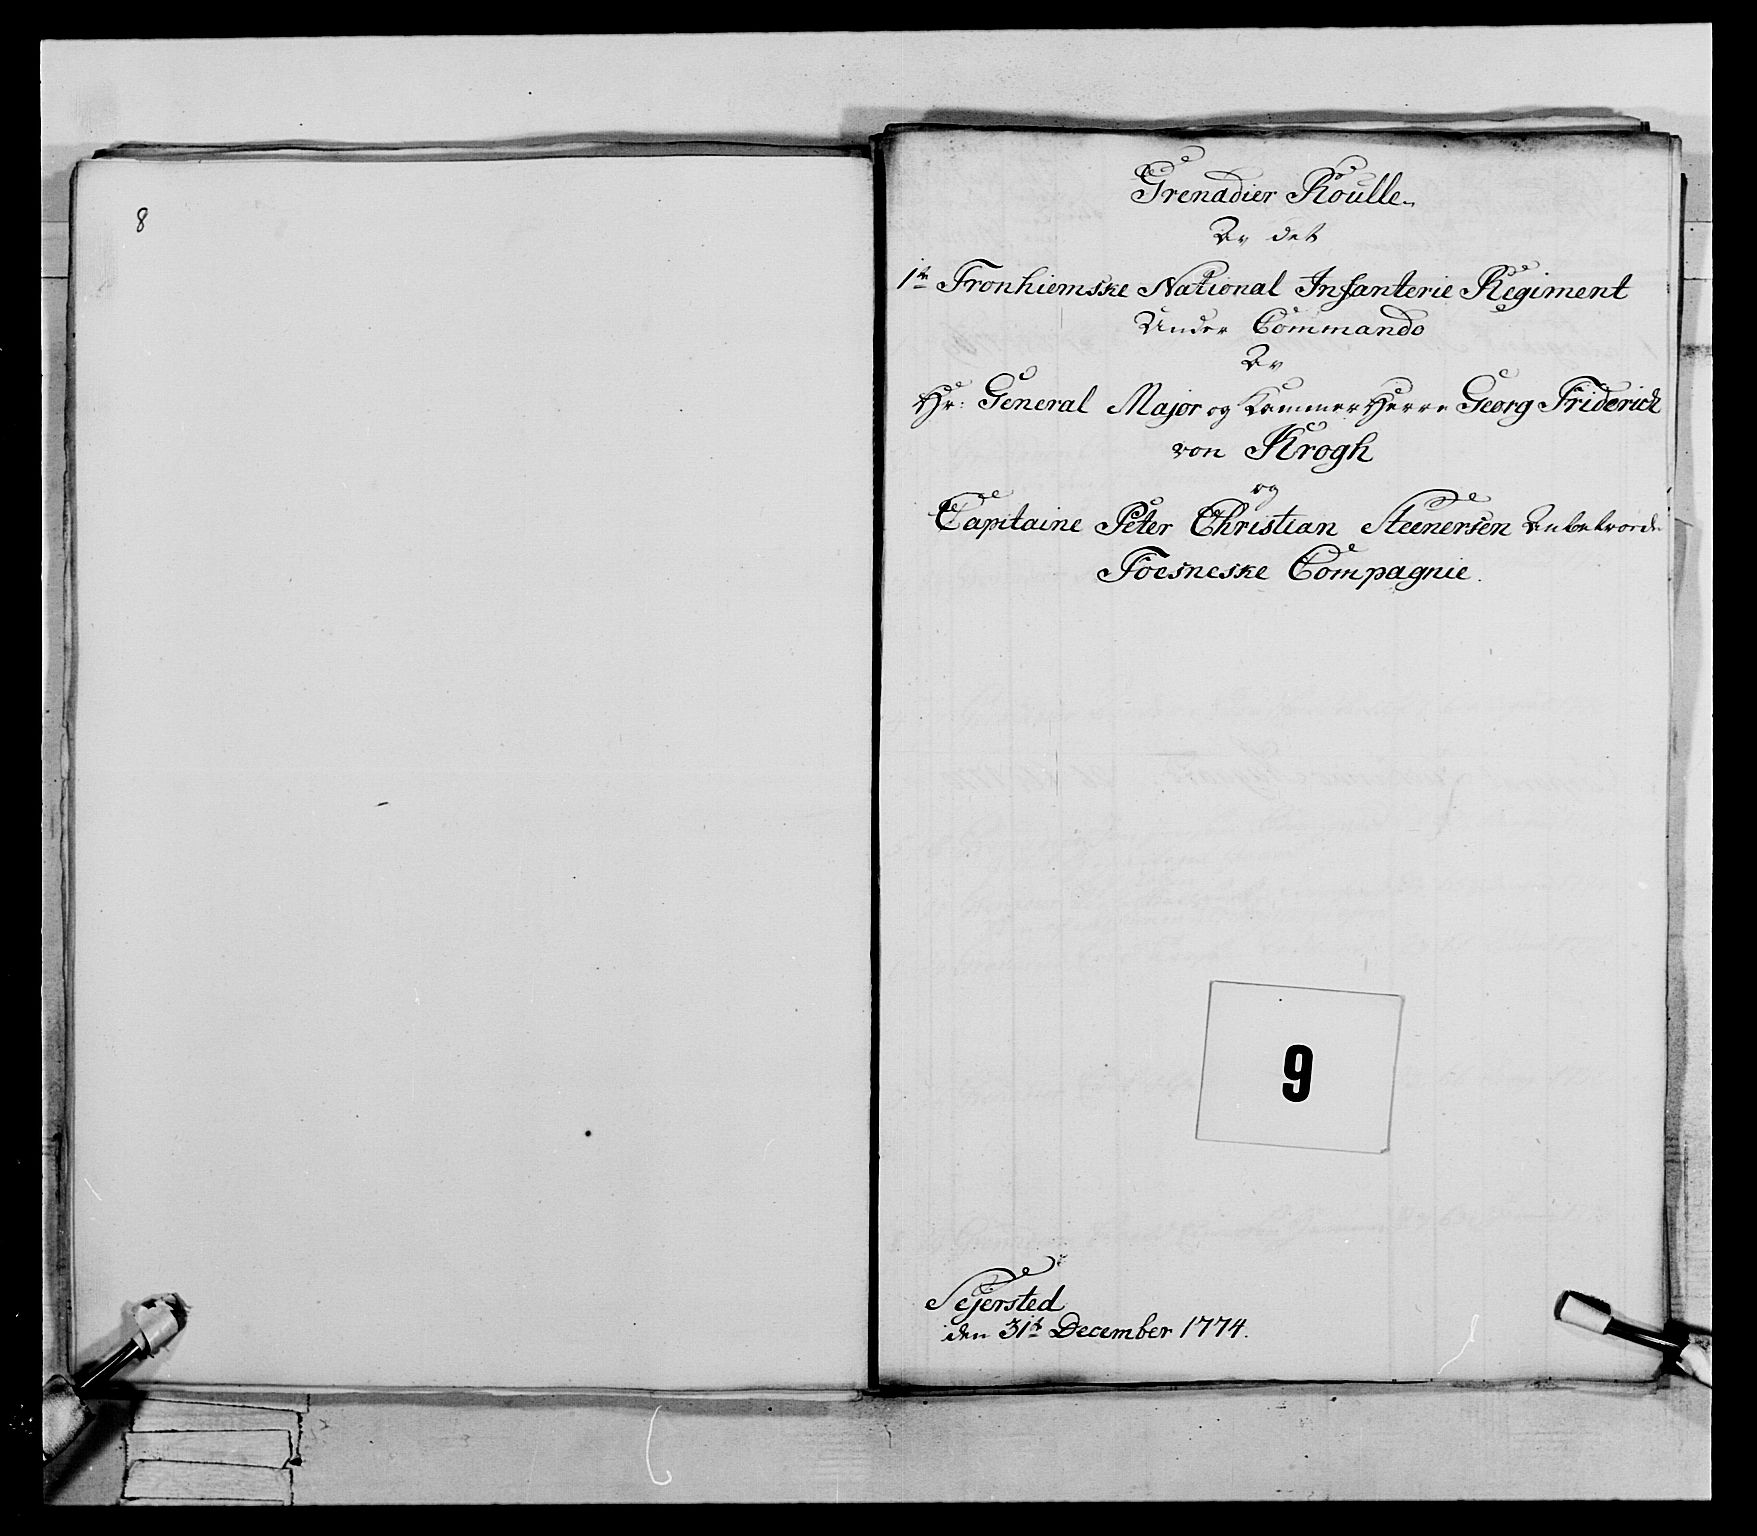 8
Grenadier Roulle
Av det
1te Tronhiemske National Infanterie Regiment
Under Commando
Av
Hr: General Major og Kammer Herre Georg Friderich
von Krogh
og
Capitaine Peter Christian Steenersen Anbetroede
Foesneske Compagnie.
9
Sejersted
den 31te December 1774.